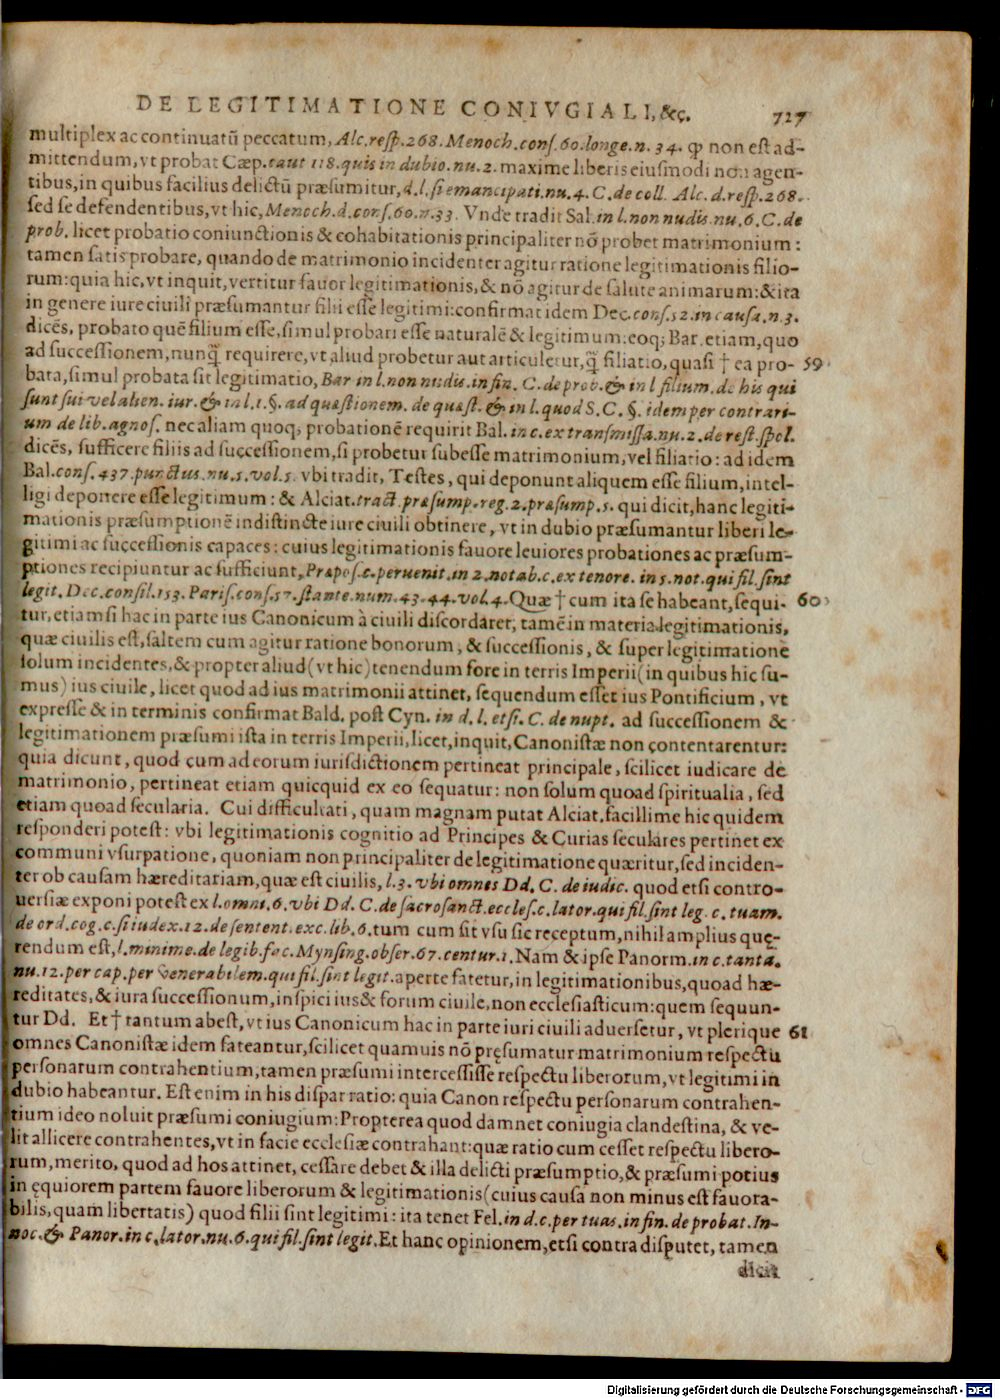 DE LEGITIMATIONE CONIVGIALI, &c. 727
multiplex ac continuatũ peccatum, Alc. resp. 268. Menoch. cons. 60. longe. n. 34. ꝙ non est ad-
mittendum, vt probat Cæp. caut 118. quis in dubio. nu. 2. maxime liberis eiusmodi non agen-
tibus, in quibus facilius delictũ præsumitur, d. l. si emancipati. nu. 4. C. de coll. Alc. d. resp. 268.
sed se defendentibus, vt hic, Menoch. d. cons. 60. n. 33. Vnde tradit Sal. in l. non nudis. nu. 6. C. de
prob. licet probatio coniunctionis & cohabitationis principaliter nõ probet matrimonium:
tamen satis probare, quando de matrimonio incidenter agitur ratione legitimationis filio-
rum: quia hic, vt inquit, vertitur fauor legitimationis, & nõ agitur de salute animarum: & ita
in genere iure ciuili præsumantur filii esse legitimi: confirmat idem Dec. cons. 52. in causa. n. 3.
dicẽs, probato quẽ filium esse, simul probari esse naturalẽ & legitimum: eoq; Bar. etiam, quo
ad successionem, nunq̃ requirere, vt aliud probetur aut articuletur, q̃ filiatio, quasi † ea pro- 59
bata, simul probata sit legitimatio, Bar in l. non nudis. in fin. C. de prob. & in l filium. de his qui
sunt sui vel alien. iur. & in l. 1. §. ad quæstionem. de quæst. & in l. quod S. C. §. idem per contrari-
um de lib. agnos. nec aliam quoq; probationẽ requirit Bal. in c. ex transmissa. nu. 2. de rest. spol.
dicẽs, sufficere filiis ad successionem, si probetur subesse matrimonium, vel filiatio: ad idem
Bal. cons. 437. punctus. nu. 5. vol. 5. vbi tradit, Testes, qui deponunt aliquem esse filium, intel-
ligi deponere esse legitimum: & Alciat. tract. præsump. reg. 2. præsump. 5. qui dicit, hanc legiti-
mationis præsumptionẽ indistincte iure ciuili obtinere, vt in dubio præsumantur liberi le-
gitimi ac successionis capaces: cuius legitimationis fauore leuiores probationes ac præsum-
ptiones recipiuntur ac sufficiunt, Præpos. c. peruenit. in 2. notab. c. ex tenore. in 5. not. qui fil. sint
legit. Dec. consil. 153. Paris. cons. 57. stante. num. 43. 44. vol. 4. Quæ † cum ita se habeant, sequi- 60
tur, etiamsi hac in parte ius Canonicum à ciuili discordaret, tamẽ in materia legitimationis,
quæ ciuilis est, saltem cum agitur ratione bonorum, & successionis, & super legitimatione
solum incidentes, & propter aliud (vt hic) tenendum fore in terris Imperii (in quibus hic su-
mus) ius ciuile, licet quod ad ius matrimonii attinet, sequendum esset ius Pontificium, vt
expresse & in terminis confirmat Bald. post Cyn. in d. l. etsi. C. de nupt. ad successionem &
legitimationem præsumi ista in terris Imperii, licet, inquit, Canonistæ non contentarentur:
quia dicunt, quod cum ad eorum iurisdictionem pertineat principale, scilicet iudicare de
matrimonio, pertineat etiam quicquid ex eo sequatur: non solum quoad spiritualia, sed
etiam quoad secularia. Cui difficultati, quam magnam putat Alciat. facillime hic quidem
responderi potest: vbi legitimationis cognitio ad Principes & Curias seculares pertinet ex
communi vsurpatione, quoniam non principaliter de legitimatione quæritur, sed inciden-
ter ob causam hæreditariam, quæ est ciuilis, l. 3. vbi omnes Dd. C. de iudic. quod etsi contro-
uersiæ exponi potest ex l. omni. 6. vbi Dd. C. de sacrosanct. eccles. c. lator. qui fil. sint leg. c. tuam.
de ord. cog. c. si iudex. 12. de sentent. exc. lib. 6. tum cum sit vsu sic receptum, nihil amplius quę-
rendum est, l. minime. de legib. fac. Mynsing. obser. 67. centur. 1. Nam & ipse Panorm. in c. tanta.
nu. 12. per cap. per venerabilem. qui fil. sint legit. aperte fatetur, in legitimationibus, quoad hæ-
reditates, & iura successionum, inspici ius & forum ciuile, non ecclesiasticum: quem sequun-
tur Dd. Et † tantum abest, vt ius Canonicum hac in parte iuri ciuili aduersetur, vt plerique 61
omnes Canonistæ idem fateantur, scilicet quamuis nõ pręsumatur matrimonium respectu
personarum contrahentium, tamen præsumi intercessisse respectu liberorum, vt legitimi in
dubio habeantur. Est enim in his dispar ratio: quia Canon respectu personarum contrahen-
tium ideo noluit præsumi coniugium: Propterea quod damnet coniugia clandestina, & ve-
lit allicere contrahentes, vt in facie ecclesiæ contrahant: quæ ratio cum cesset respectu libero-
rum, merito, quod ad hos attinet, cessare debet & illa delicti præsumptio, & præsumi potius
in ęquiorem partem fauore liberorum & legitimationis (cuius causa non minus est fauora-
bilis, quam libertatis) quod filii sint legitimi: ita tenet Fel. in d. c. per tuas. in fin. de probat. In-
noc. & Panor. in c. lator. nu. 6. qui fil. sint legit. Et hanc opinionem, etsi contra disputet, tamen
dicit
Digitalisierung gefördert durch die Deutsche Forschungsgemeinschaft - DFG